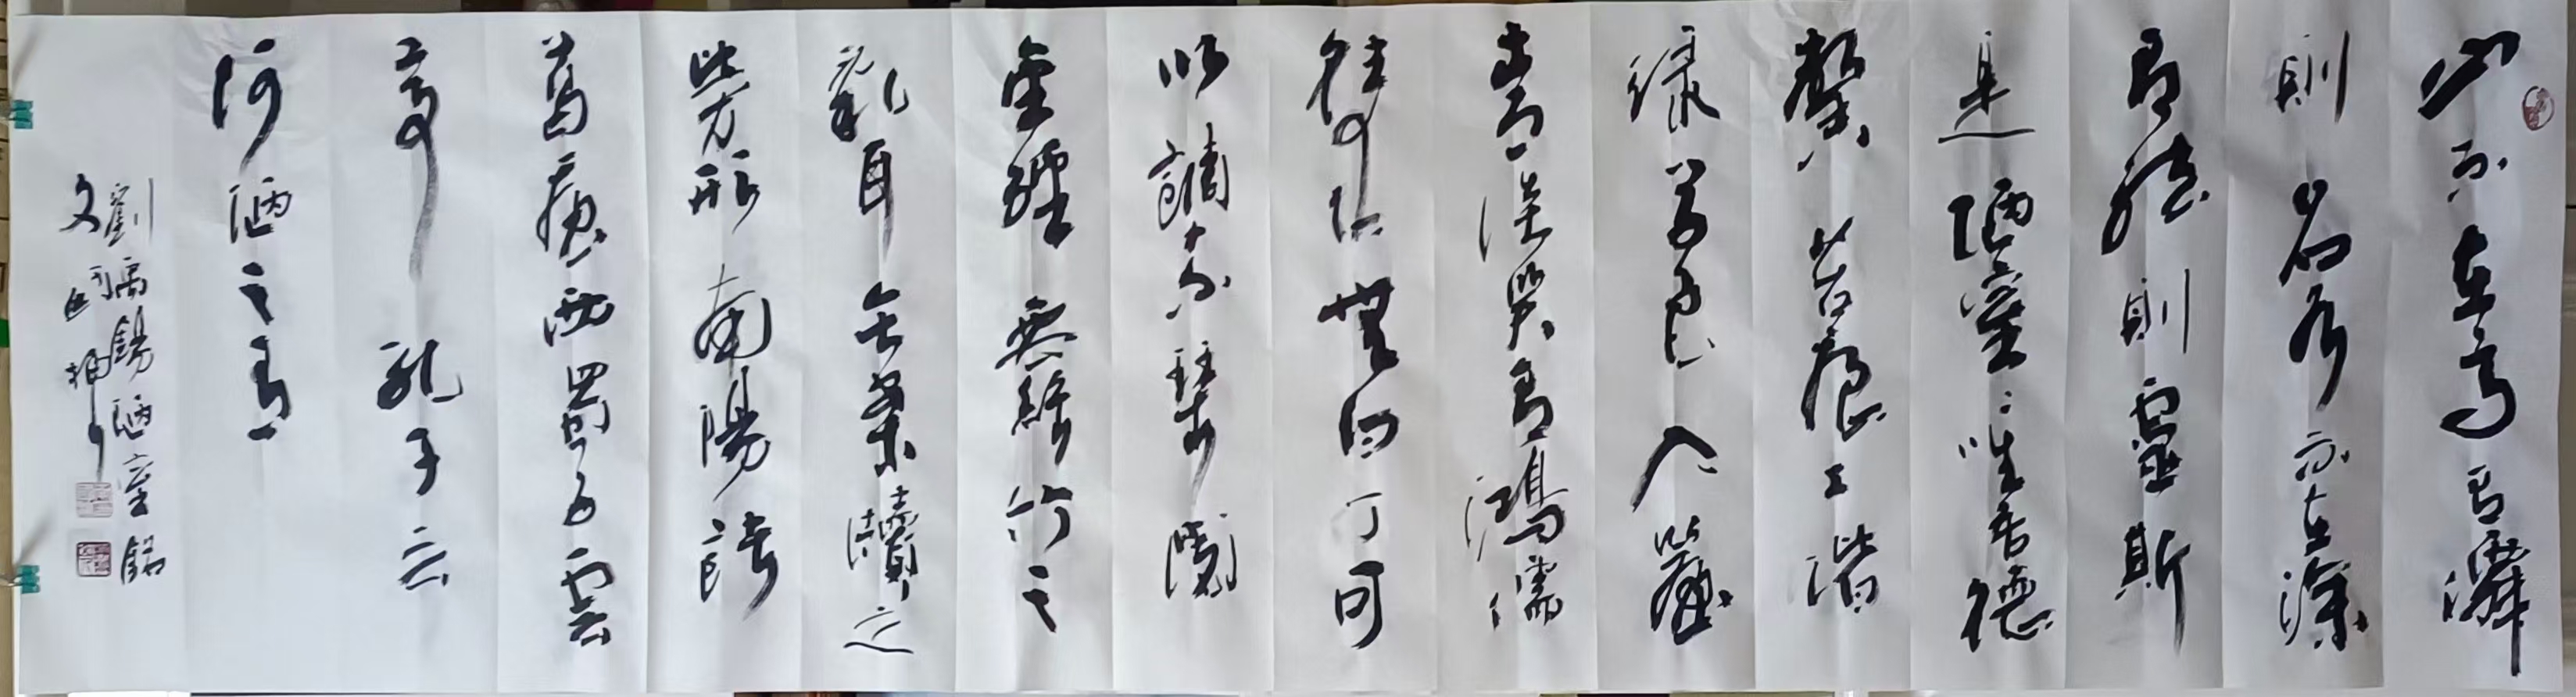 山不在高有僊
則名水不在深
有龍則靈斯
是陋室惟吾德
馨苔痕上階
綠草色入簾
青談笑有鴻儒
往來無白丁可
以調素琴閱
金經無絲竹之
亂耳無案牘之
勞形南陽諸
葛廬西蜀子雲
亭孔子云
何陋之有
劉禹錫陋室銘
文